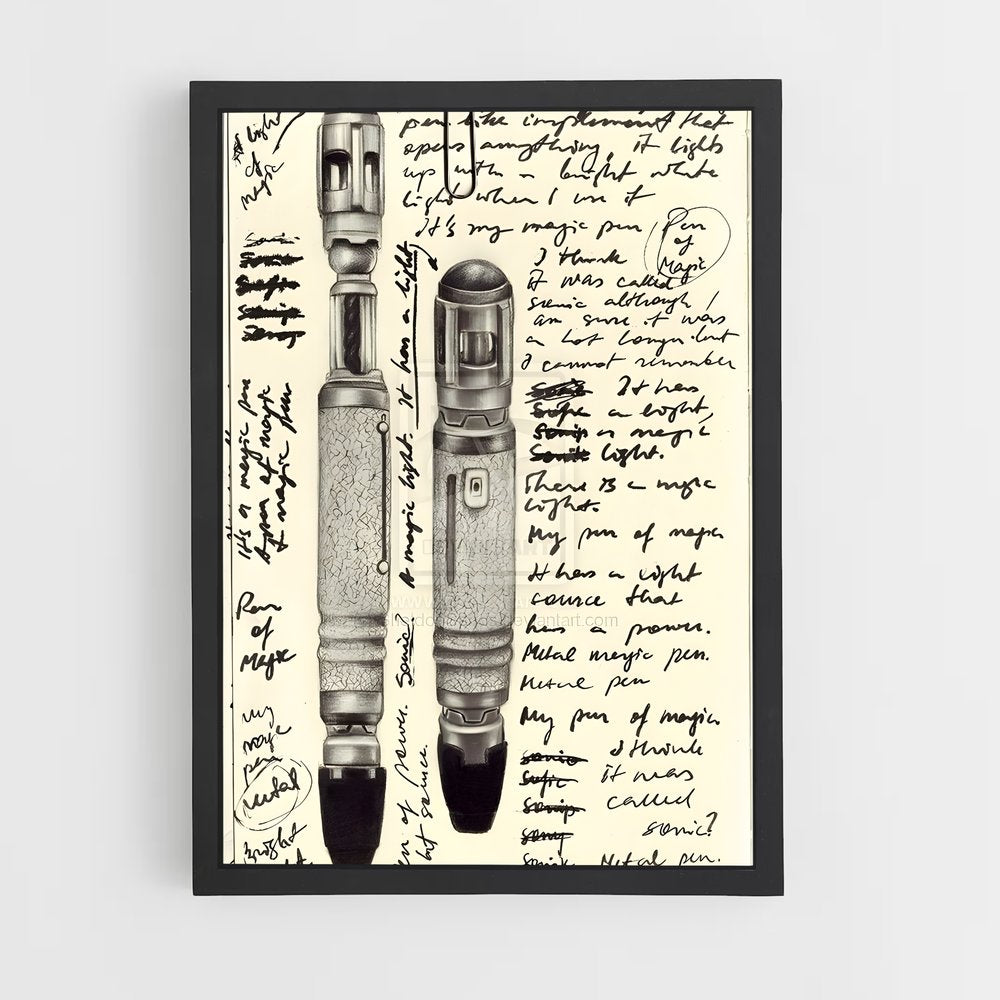 light
of
magic
pen like implement that
opens anything, it lights
up with a bright white
light when I use it
It's my magic pen
Pen
of
Magic
I think
it was called
sonic although I
am sure it was
a lot longer but
I cannot remember
It has
a light,
a magic
light.
There is a magic
light.
My pen of magic
It has a light
source that
has a power.
Metal magic pen.
Metal pen
My pen of magic
sonic
I think
it was
called
sonic?
Metal pen.
A magic light. It has a light
Sonic?
of power.
but science.
It's a magic pen
A pen of magic
A magic pen
Pen
of
Magic
my
magic
pen
metal
Bright
light
deviantART
deviantart.com